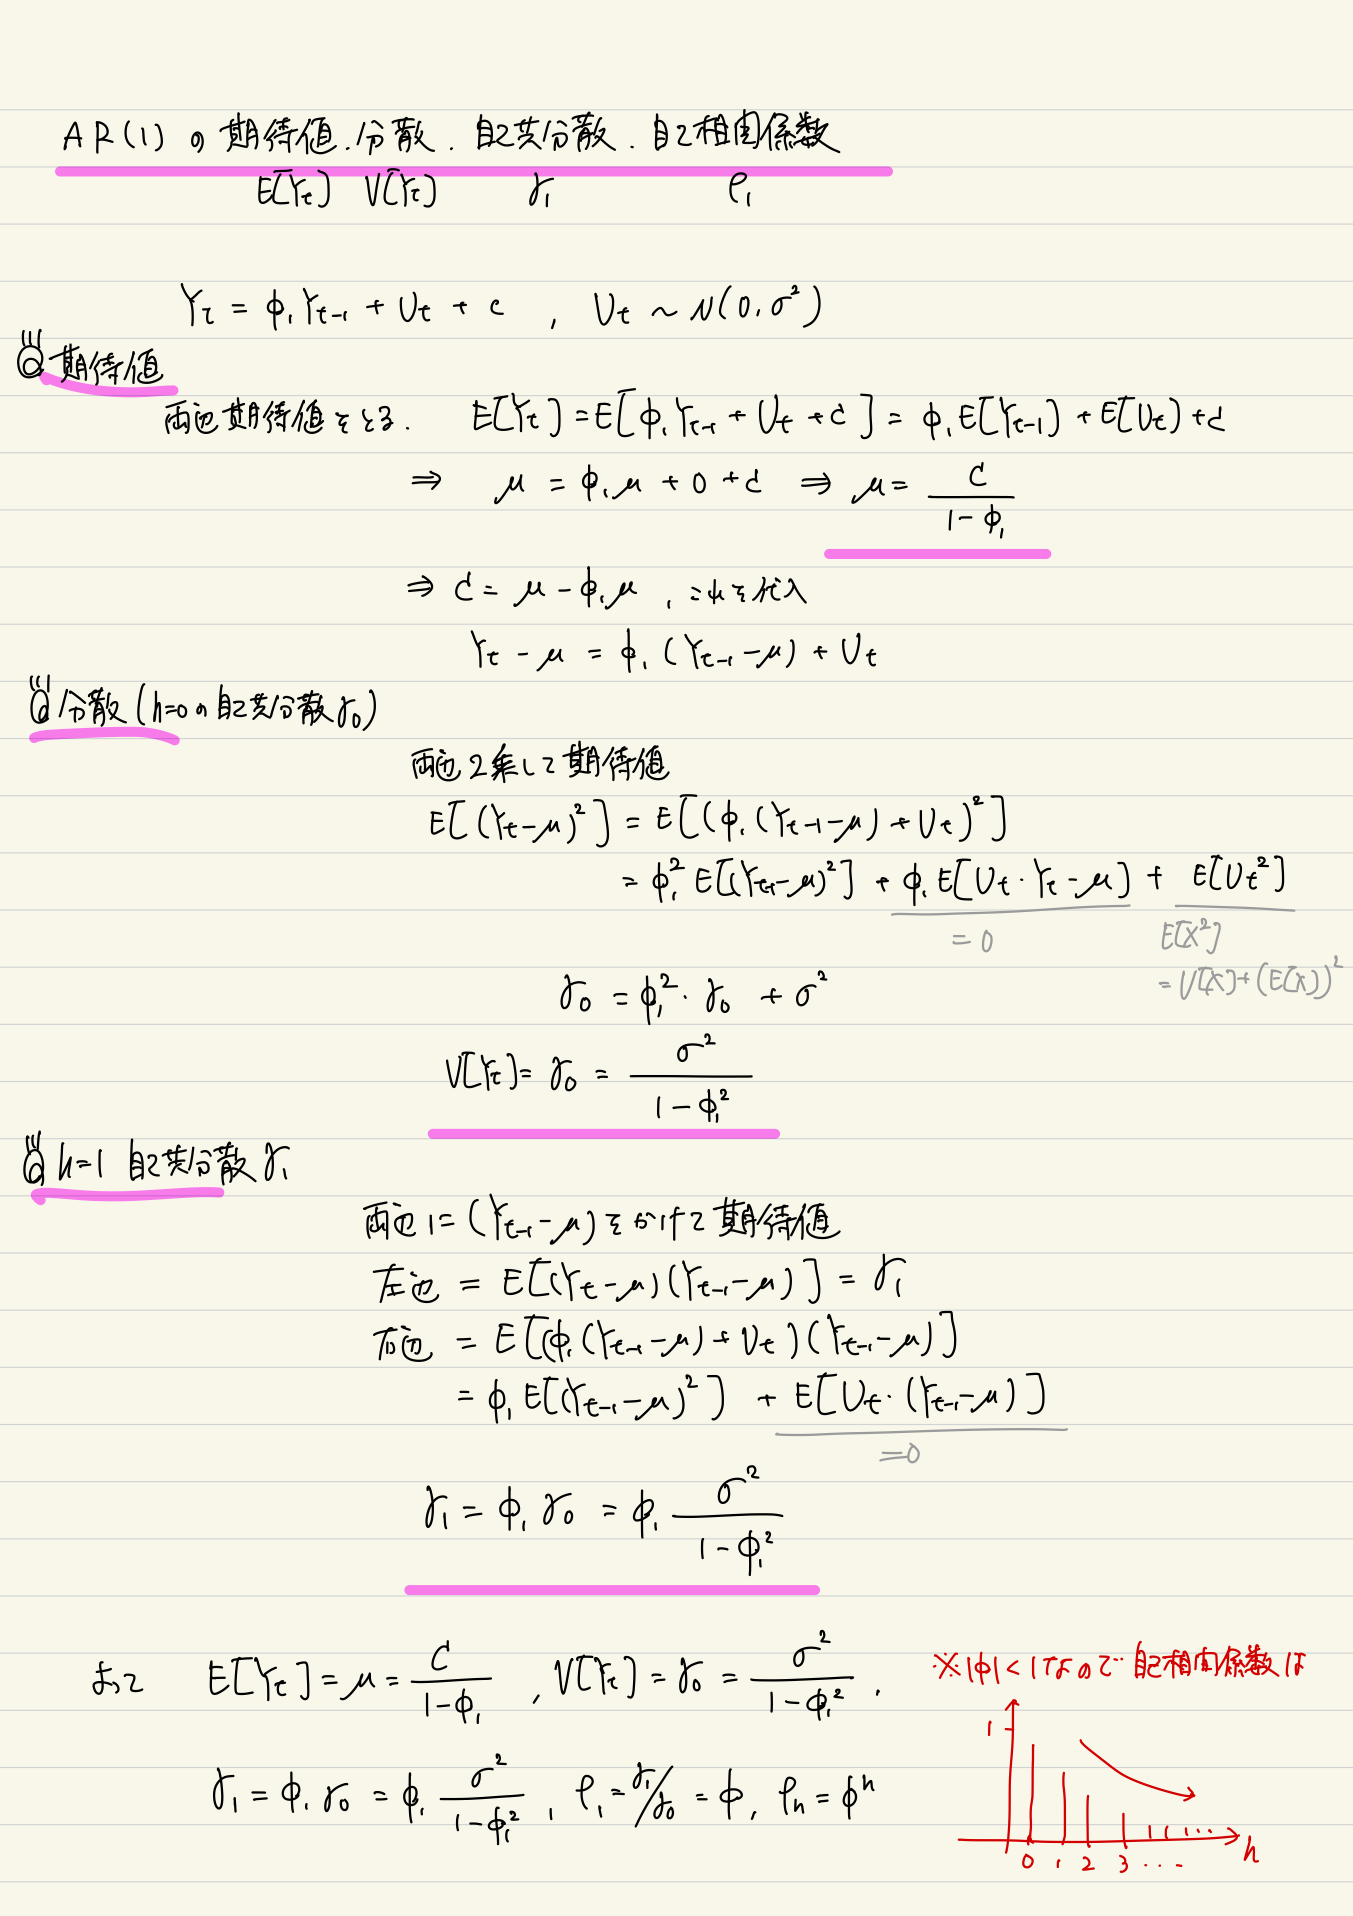 AR(1) の 期待値.分散. 自己共分散. 自己相関係数
E[Yt] V[Yt] γ1 ρ1
Yt = φ1Yt-1 + Ut + c , Ut ~ N(0,σ²)
期待値
両辺期待値をとる. E[Yt] = E[φ1Yt-1 + Ut + c] = φ1E[Yt-1] + E[Ut] + c
⇒ μ = φ1μ + 0 + c ⇒ μ = c/(1-φ1)
⇒ c = μ - φ1μ , これを代入
Yt - μ = φ1(Yt-1 - μ) + Ut
分散(h=0の自己共分散γ0)
両辺2乗して期待値
E[(Yt-μ)²] = E[(φ1(Yt-1-μ) + Ut)²]
= φ1²E[(Yt-1-μ)²] + φ1E[Ut・Yt-μ] + E[Ut²]
= 0 E[X²]
= V[X]+(E[X])²
γ0 = φ1²・γ0 + σ²
V[Yt] = γ0 = σ²/(1-φ1²)
h=1 自己共分散γ1
両辺に(Yt-1-μ)をかけて期待値
左辺 = E[(Yt-μ)(Yt-1-μ)] = γ1
右辺 = E[(φ1(Yt-1-μ)+Ut)(Yt-1-μ)]
= φ1E[(Yt-1-μ)²] + E[Ut・(Yt-1-μ)]
=0
γ1 = φ1γ0 = φ1 σ²/(1-φ1²)
よって E[Yt] = μ = c/(1-φ1) , V[Yt] = γ0 = σ²/(1-φ1²) ,
γ1 = φ1γ0 = φ1 σ²/(1-φ1²) , ρ1 = γ1/γ0 = φ, ρh = φ^h
※|φ|<1なので 自己相関係数は
1
0 1 2 3 ・・・ h